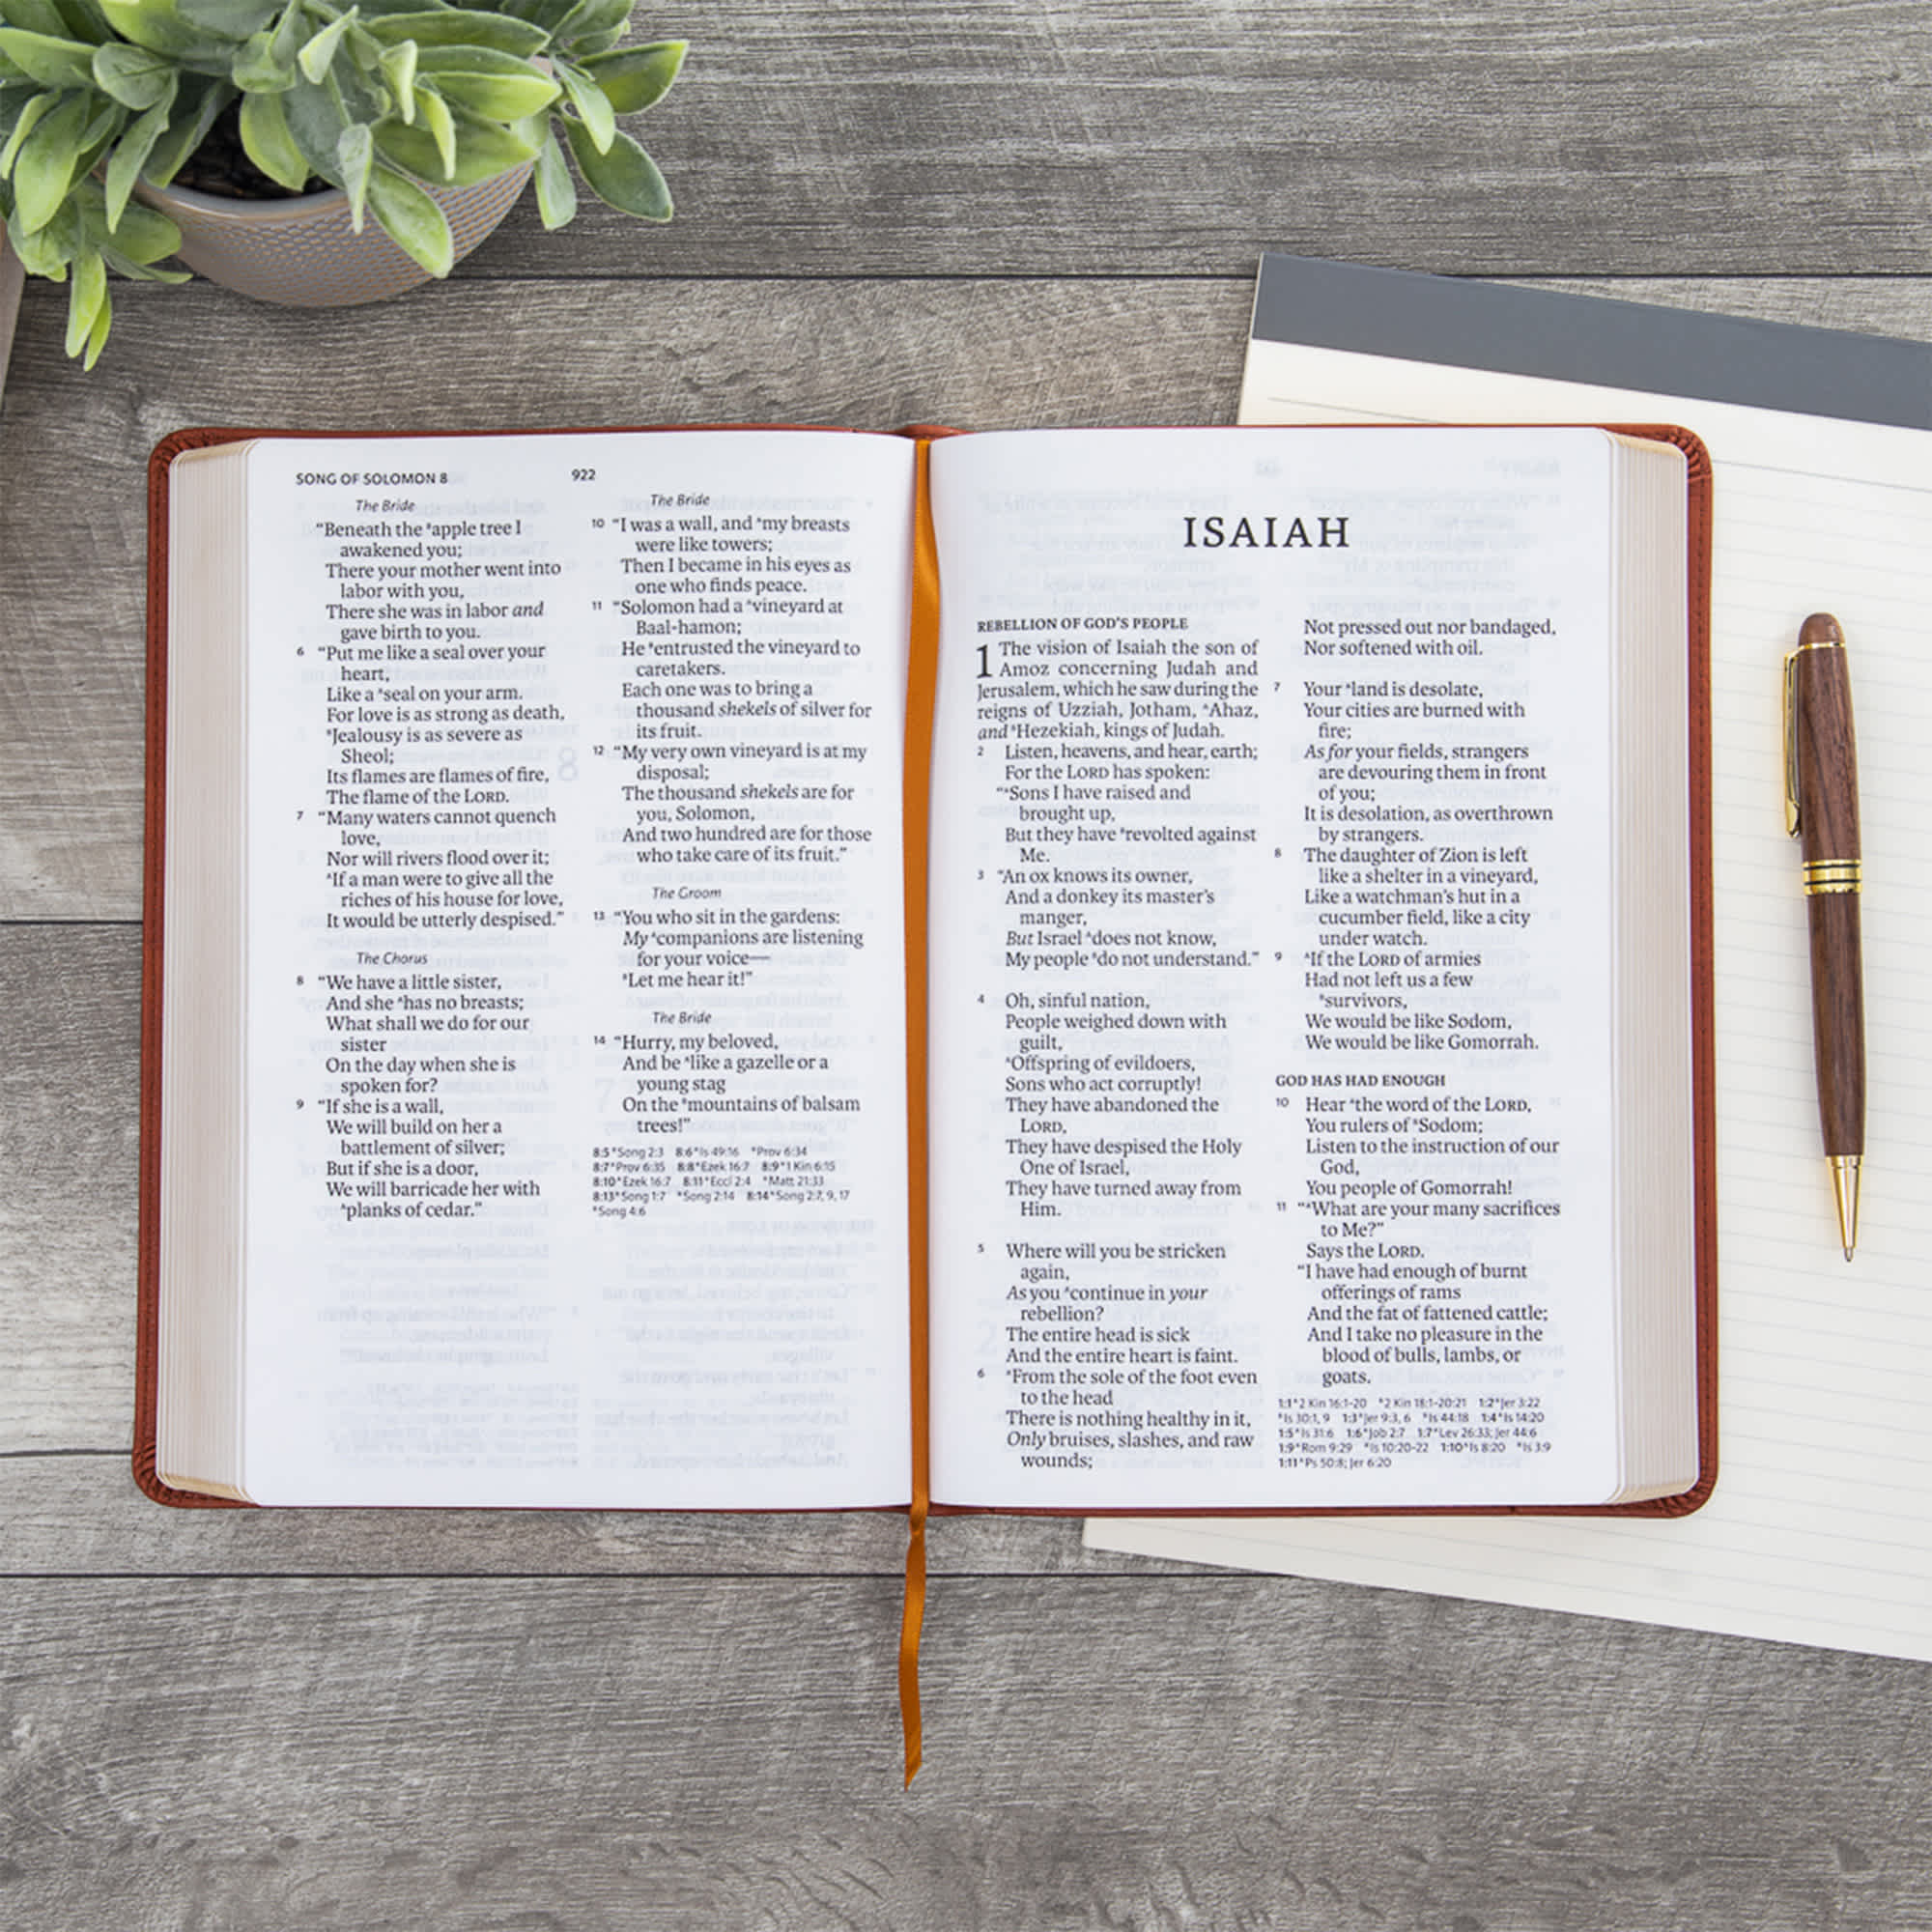 SONG OF SOLOMON 8
922
The Bride
“Beneath the ᴬapple tree I
awakened you;
There your mother went into
labor with you,
There she was in labor and
gave birth to you.
6 “Put me like a seal over your
heart,
Like a ᴬseal on your arm.
For love is as strong as death,
ᴮJealousy is as severe as
Sheol;
Its flames are flames of fire,
The flame of the LORD.
7 “Many waters cannot quench
love,
Nor will rivers flood over it;
ᴬIf a man were to give all the
riches of his house for love,
It would be utterly despised.”
The Chorus
8 “We have a little sister,
And she ᴬhas no breasts;
What shall we do for our
sister
On the day when she is
spoken for?
9 “If she is a wall,
We will build on her a
battlement of silver;
But if she is a door,
We will barricade her with
ᴬplanks of cedar.”
The Bride
10 “I was a wall, and ᴬmy breasts
were like towers;
Then I became in his eyes as
one who finds peace.
11 “Solomon had a ᴬvineyard at
Baal-hamon;
He ᴮentrusted the vineyard to
caretakers.
Each one was to bring a
thousand shekels of silver for
its fruit.
12 “My very own vineyard is at my
disposal;
The thousand shekels are for
you, Solomon,
And two hundred are for those
who take care of its fruit.”
The Groom
13 “You who sit in the gardens:
My ᴬcompanions are listening
for your voice—
ᴮLet me hear it!”
The Bride
14 “Hurry, my beloved,
And be ᴬlike a gazelle or a
young stag
On the ᴮmountains of balsam
trees!”
8:5 ᴬSong 2:3 8:6 ᴬIs 49:16 ᴮProv 6:34
8:7 ᴬProv 6:35 8:8 ᴬEzek 16:7 8:9 ᴬ1 Kin 6:15
8:10 ᴬEzek 16:7 8:11 ᴬEccl 2:4 ᴮMatt 21:33
8:13 ᴬSong 1:7 ᴮSong 2:14 8:14 ᴬSong 2:7, 9, 17
ᴮSong 4:6
ISAIAH
REBELLION OF GOD’S PEOPLE
1 The vision of Isaiah the son of
Amoz concerning Judah and
Jerusalem, which he saw during the
reigns of Uzziah, Jotham, ᴬAhaz,
and ᴮHezekiah, kings of Judah.
2 Listen, heavens, and hear, earth;
For the LORD has spoken:
“ᴬSons I have raised and
brought up,
But they have ᴮrevolted against
Me.
3 “An ox knows its owner,
And a donkey its master’s
manger,
But Israel ᴬdoes not know,
My people ᴮdo not understand.”
4 Oh, sinful nation,
People weighed down with
guilt,
ᴬOffspring of evildoers,
Sons who act corruptly!
They have abandoned the
LORD,
They have despised the Holy
One of Israel,
They have turned away from
Him.
5 Where will you be stricken
again,
As you ᴬcontinue in your
rebellion?
The entire head is sick
And the entire heart is faint.
6 ᴬFrom the sole of the foot even
to the head
There is nothing healthy in it,
Only bruises, slashes, and raw
wounds;
Not pressed out nor bandaged,
Nor softened with oil.
7 Your ᴬland is desolate,
Your cities are burned with
fire;
As for your fields, strangers
are devouring them in front
of you;
It is desolation, as overthrown
by strangers.
8 The daughter of Zion is left
like a shelter in a vineyard,
Like a watchman’s hut in a
cucumber field, like a city
under watch.
9 ᴬIf the LORD of armies
Had not left us a few
ᴮsurvivors,
We would be like Sodom,
We would be like Gomorrah.
GOD HAS HAD ENOUGH
10 Hear ᴬthe word of the LORD,
You rulers of ᴮSodom;
Listen to the instruction of our
God,
You people of Gomorrah!
11 “ᴬWhat are your many sacrifices
to Me?”
Says the LORD.
“I have had enough of burnt
offerings of rams
And the fat of fattened cattle;
And I take no pleasure in the
blood of bulls, lambs, or
goats.
1:1 ᴬ2 Kin 16:1-20 ᴮ2 Kin 18:1-20:21 1:2 ᴬJer 3:22
ᴮIs 30:1, 9 1:3 ᴬJer 9:3, 6 ᴮIs 44:18 1:4 ᴬIs 14:20
1:5 ᴬIs 31:6 1:6 ᴬJob 2:7 1:7 ᴬLev 26:33; Jer 44:6
1:9 ᴬRom 9:29 ᴮIs 10:20-22 1:10 ᴬIs 8:20 ᴮIs 3:9
1:11 ᴬPs 50:8; Jer 6:20